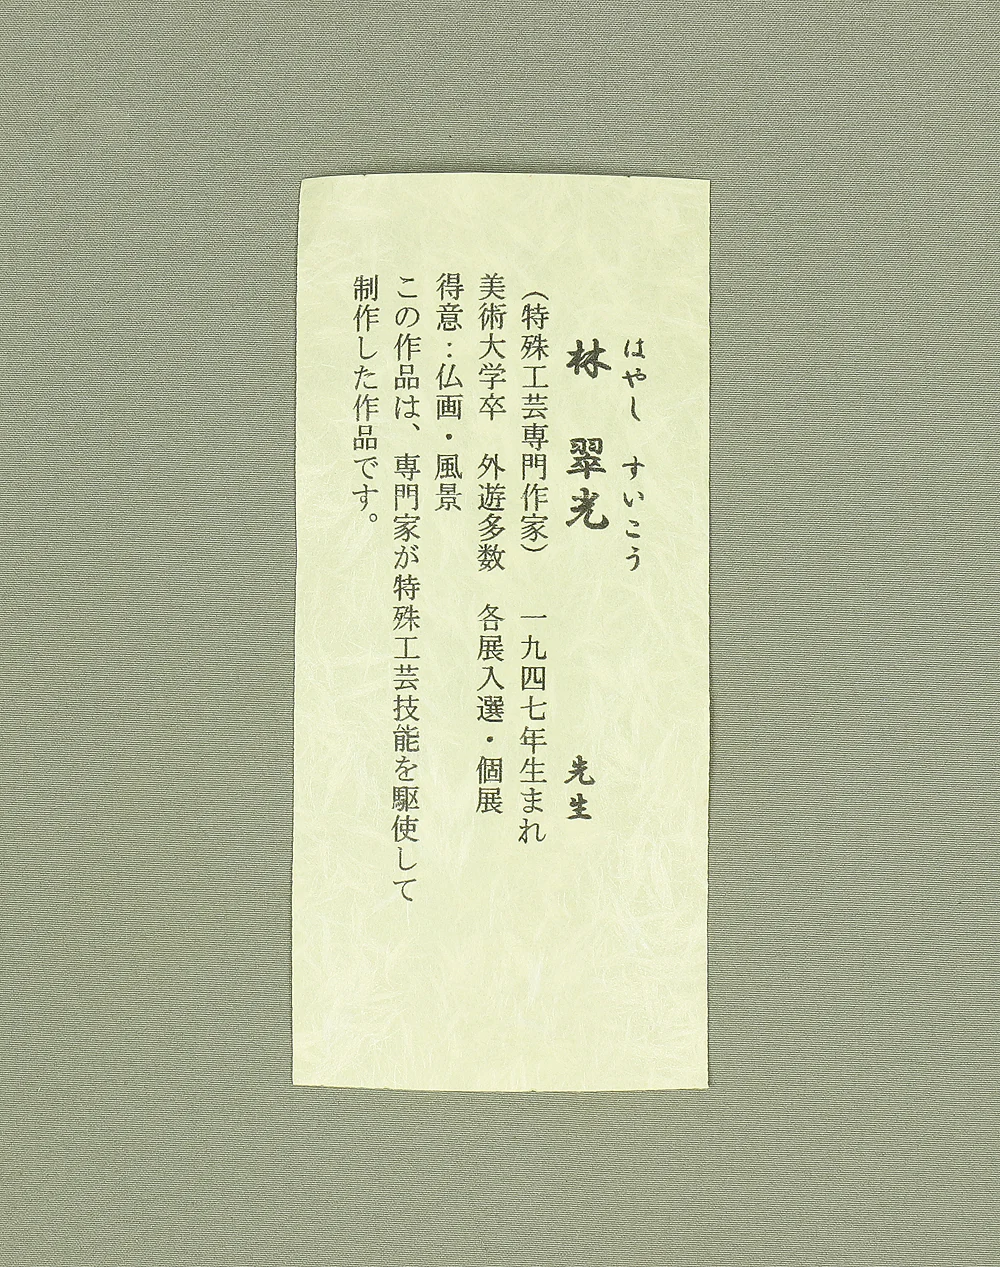 はやし　すいこう
林　翠光　先生
（特殊工芸専門作家）　一九四七年生まれ
美術大学卒　外遊多数　各展入選・個展
得意：仏画・風景
この作品は、専門家が特殊工芸技能を駆使して
制作した作品です。